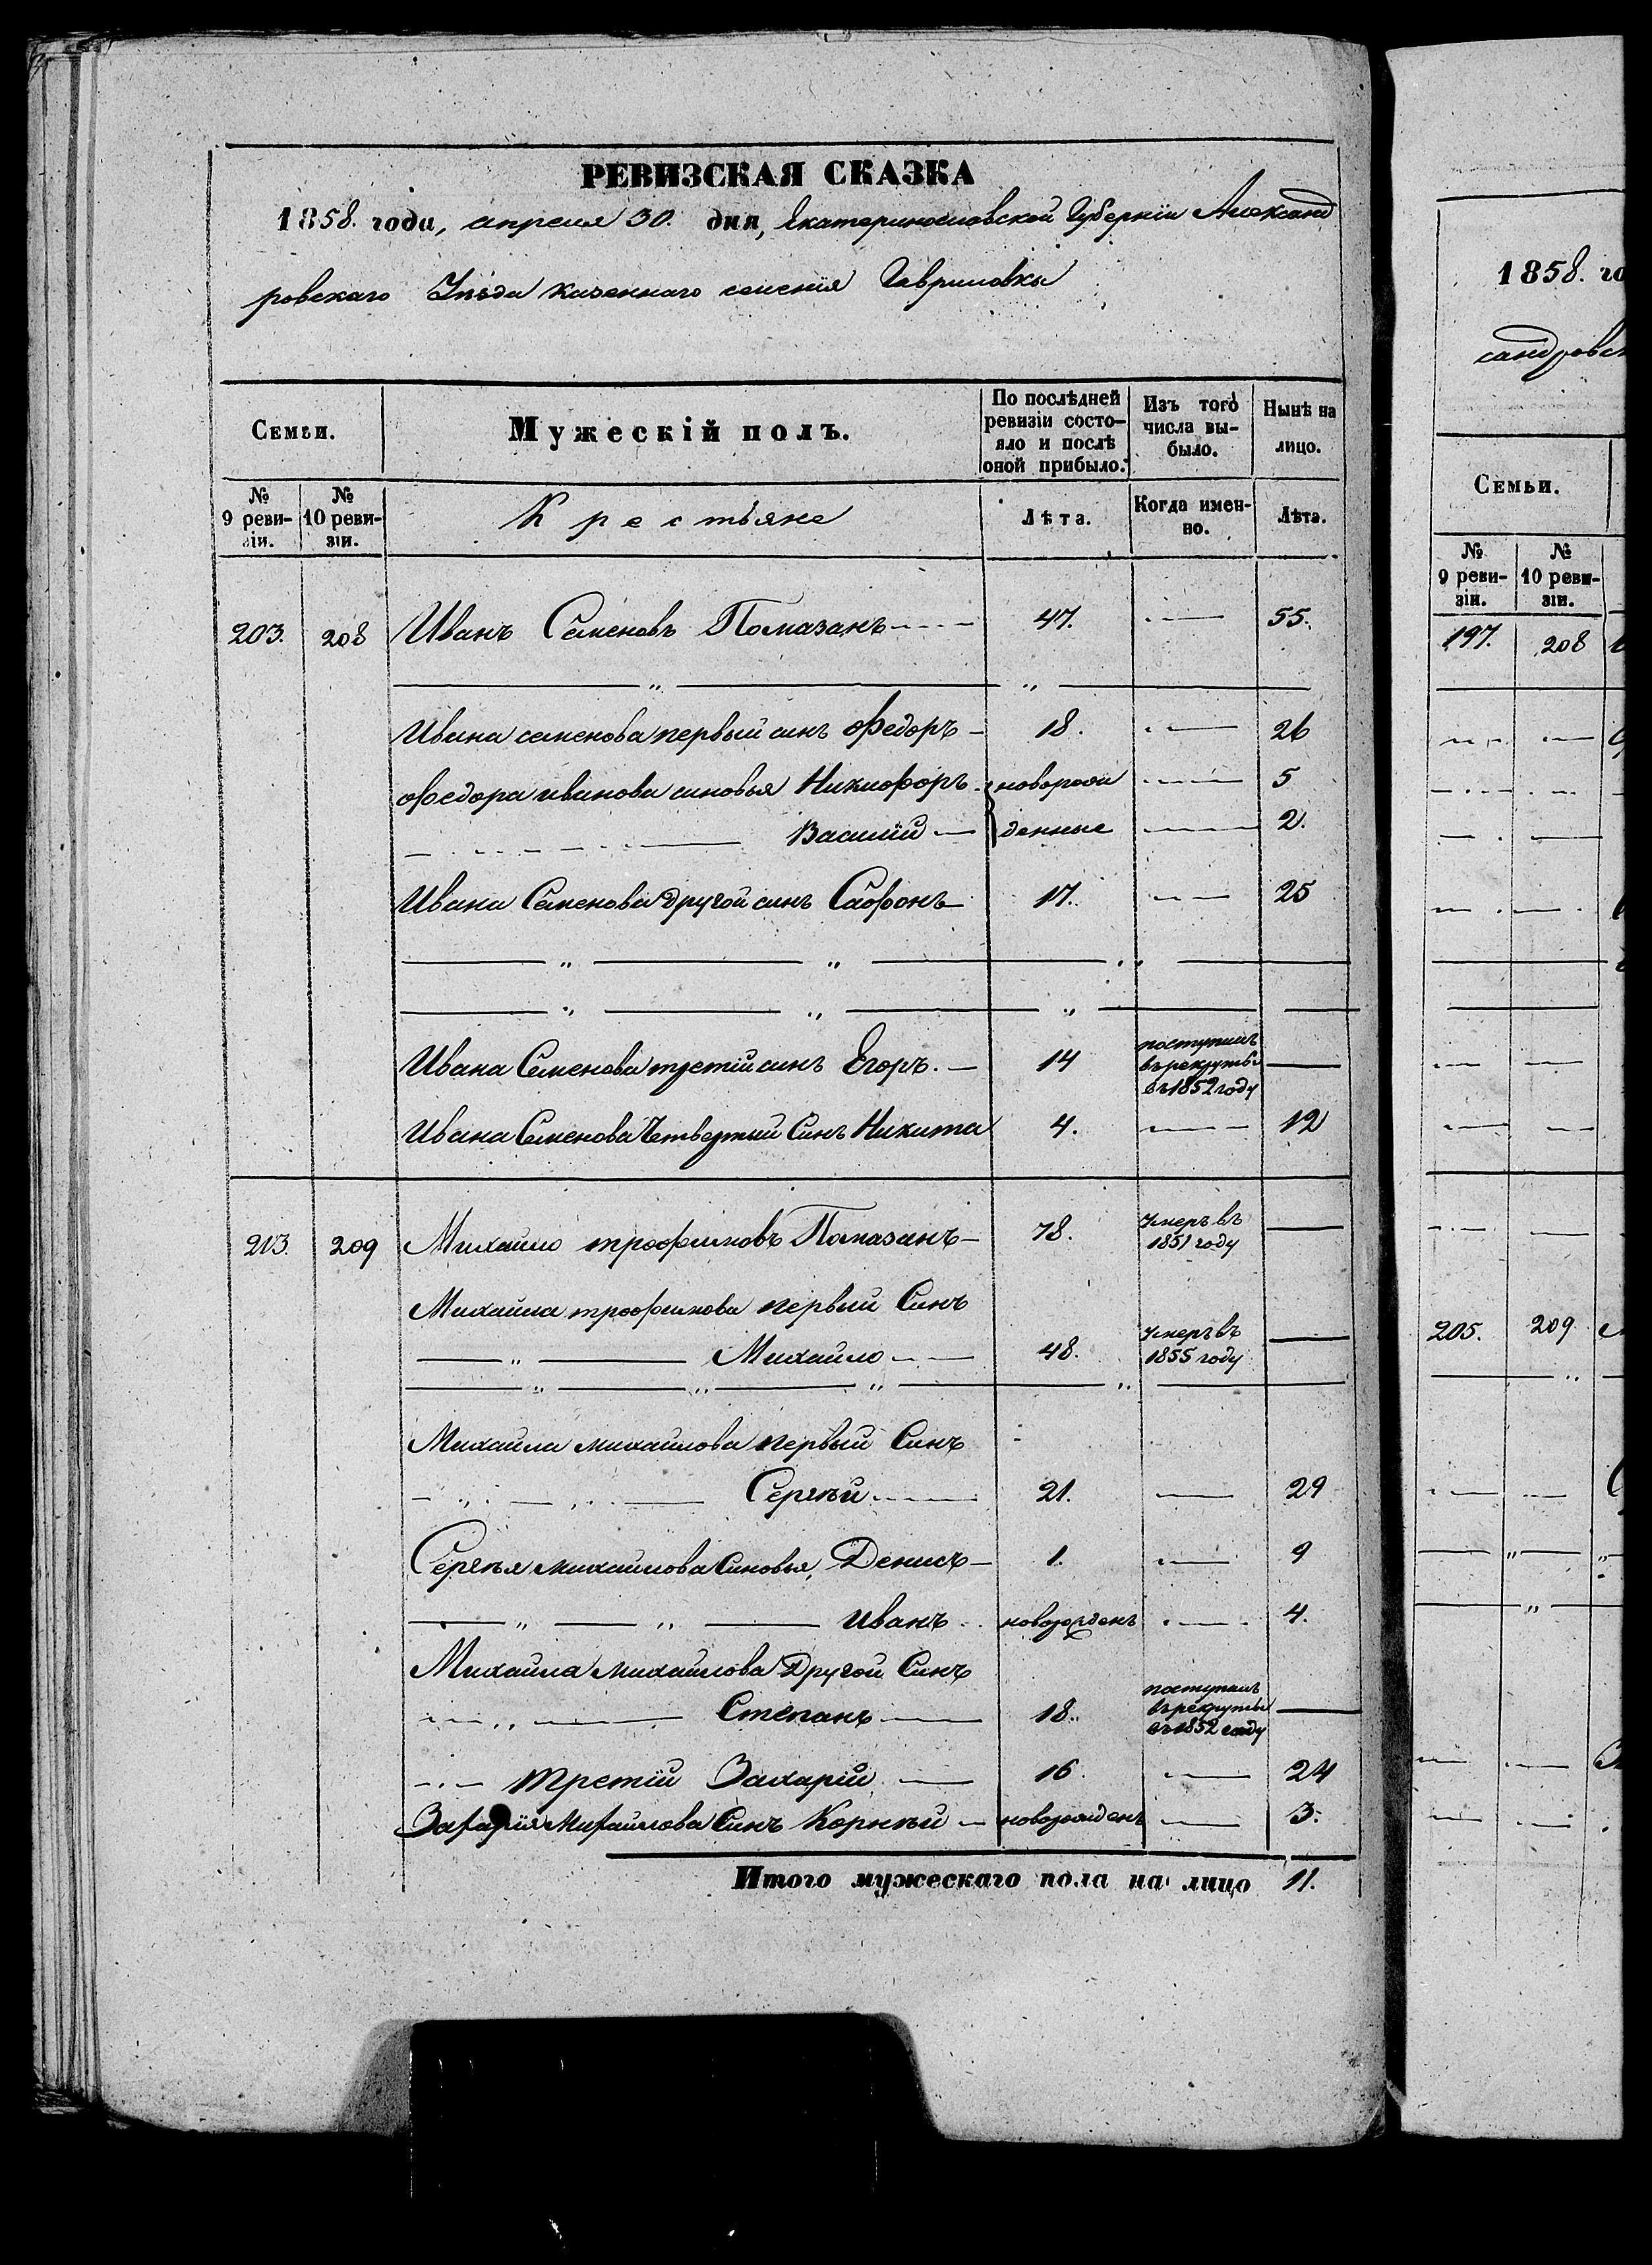 РЕВИЗСКАЯ СКАЗКА
1858. года, апреля 30. дня, Екатеринославской Губернiи Александ
ровскаго Уѣзда казеннаго селенiя Гавриловки
Семьи. Мужескiй полъ. По послѣдней ревизiи состо- яло и послѣ оной прибыло. Изъ того числа вы- было. Нынѣ на лицо.
№ 9 реви- зiи. № 10 реви- зiи. Крестьяне Лѣта. Когда имен- но. Лѣта.
203. 208 Иванъ Семеновъ Помазанъ 47. 55.
Ивана семенова первый синъ Федоръ 18. 26
Федора иванова сыновья Никифоръ новорож 5
Василiй денные 2.
Ивана Семенова другой синъ Сафонъ 17. 25
Ивана Семенова третiй синъ Егоръ. 14 поступилъ въ рекруты въ 1852 году
Ивана Семенова Четвертый Синъ Никита 4. 12
213. 209 Михайло трофимовъ Помазанъ 78. Умеръ въ 1851 году
Михайла трофимова первый Синъ
Михайло 48. Умеръ въ 1855 году
Михайла михайлова первый Синъ
Сергѣй 21. 29
Сергѣя михайлова Сыновья, Денисъ 1. 9
Иванъ новорожденъ 4.
Михайла михайлова Другой Синъ
Степанъ 18. поступилъ въ рекруты въ 1852 году
третiй Захарiй 16. 24
Захарiя Михайлова Синъ Корнѣй новорожденъ 3.
Итого мужескаго пола на лицо 11.
1858. го
сандровск
Семьи.
№ 9 реви- зiи. № 10 реви- зiи.
197. 208
205. 209